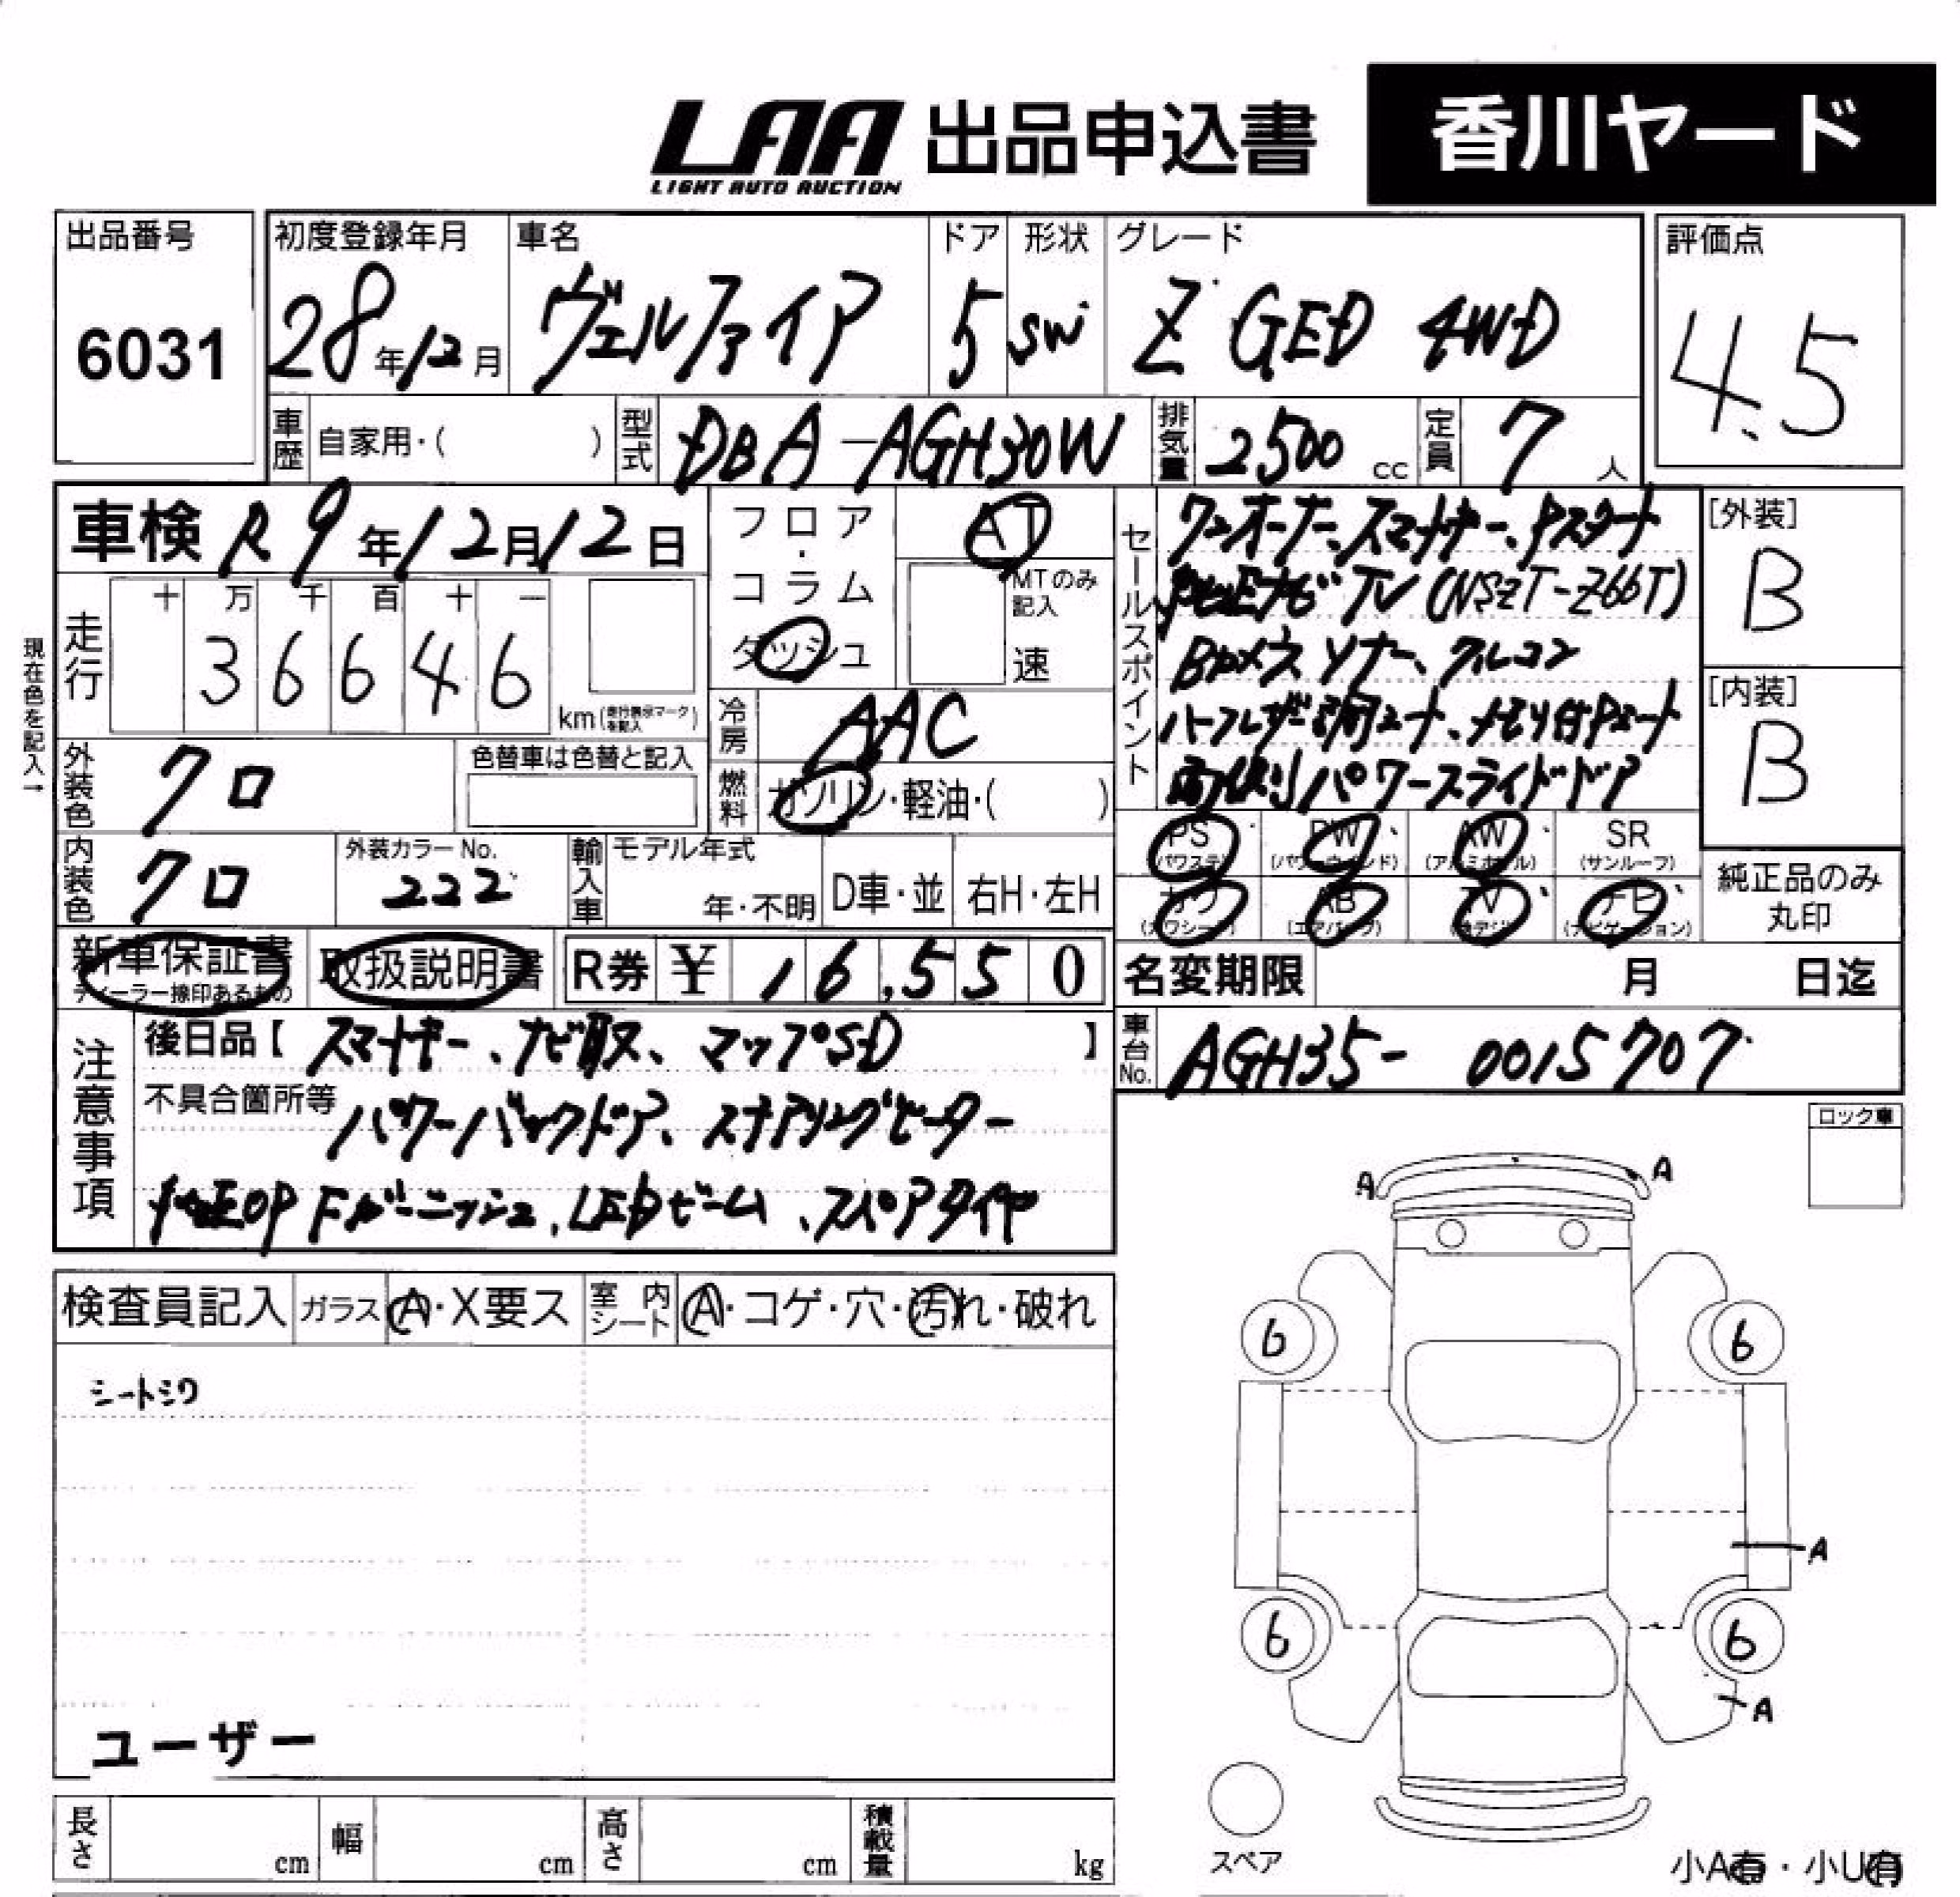 LAA 出品申込書 香川ヤード
LIGHT AUTO AUCTION
出品番号 初度登録年月 車名 ドア 形状 グレード 評価点
6031 28年12月 ヴェルファイア 5 SW Z GED 4WD 4.5
車歴 自家用・( ) 型式 DBA-AGH30W 排気量 2500 cc 定員 7 人
車検 R9年12月12日 フロア・コラム ダッシュ AT MTのみ記入 速
走行 十 万 千 百 十 一
3 6 6 4 6 km(走行表示マークを記入)
現在色を記入→
冷房 AAC
外装色 クロ 色替車は色替と記入 燃料 ガソリン・軽油・( )
内装色 クロ 外装カラーNo. 222 輸入車 モデル年式 年・不明 D車・並 右H・左H
セールスポイント
ワンオーナー、スマートキー、Pスタート
純正ナビ TV (NSZT-Z66T)
Bカメラ ソナー、クルコン
ハーフレザー調シート、メモリ付Pシート
両側パワースライドドア
[外装] B
[内装] B
PS(パワステ) PW(パワーウィンド) AW(アルミホイル) SR(サンルーフ)
カワ(カワシート) AB(エアバッグ) TV(地デジ) ナビ(ナビゲーション)
純正品のみ丸印
新車保証書 ディーラー捺印あるもの 取扱説明書 R券 ¥ 16,550
名変期限 月 日迄
車台No. AGH35- 0015707
注意事項
後日品【 スマートキー、ナビ取、マップSD 】
不具合箇所等 パワーバックドア、ステアリングヒーター
純正OP Fガーニッシュ、LEDビーム、スペアタイヤ
ロック車
検査員記入 ガラス A・X要ス 室内シート A・コゲ・穴・汚れ・破れ
シートシワ
ユーザー
A A
6 6
A
6 6
A
スペア
長さ cm 幅 cm 高さ cm 積載量 kg
小A有・小U有